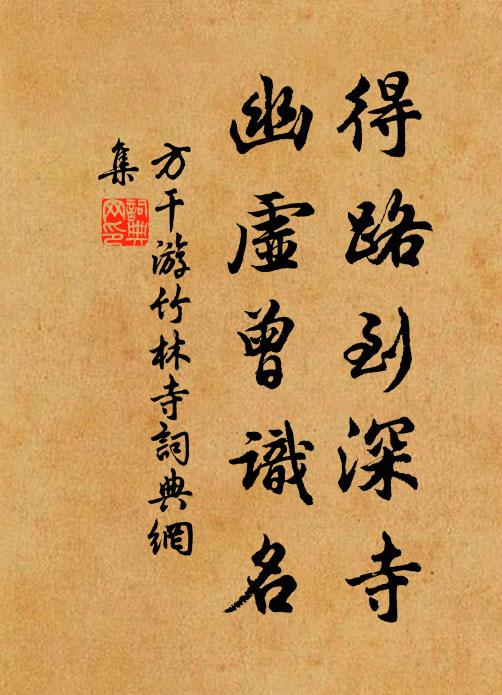 得路到深寺
幽虛曾識名
方干游竹林寺詞典網
集
詞典
网印